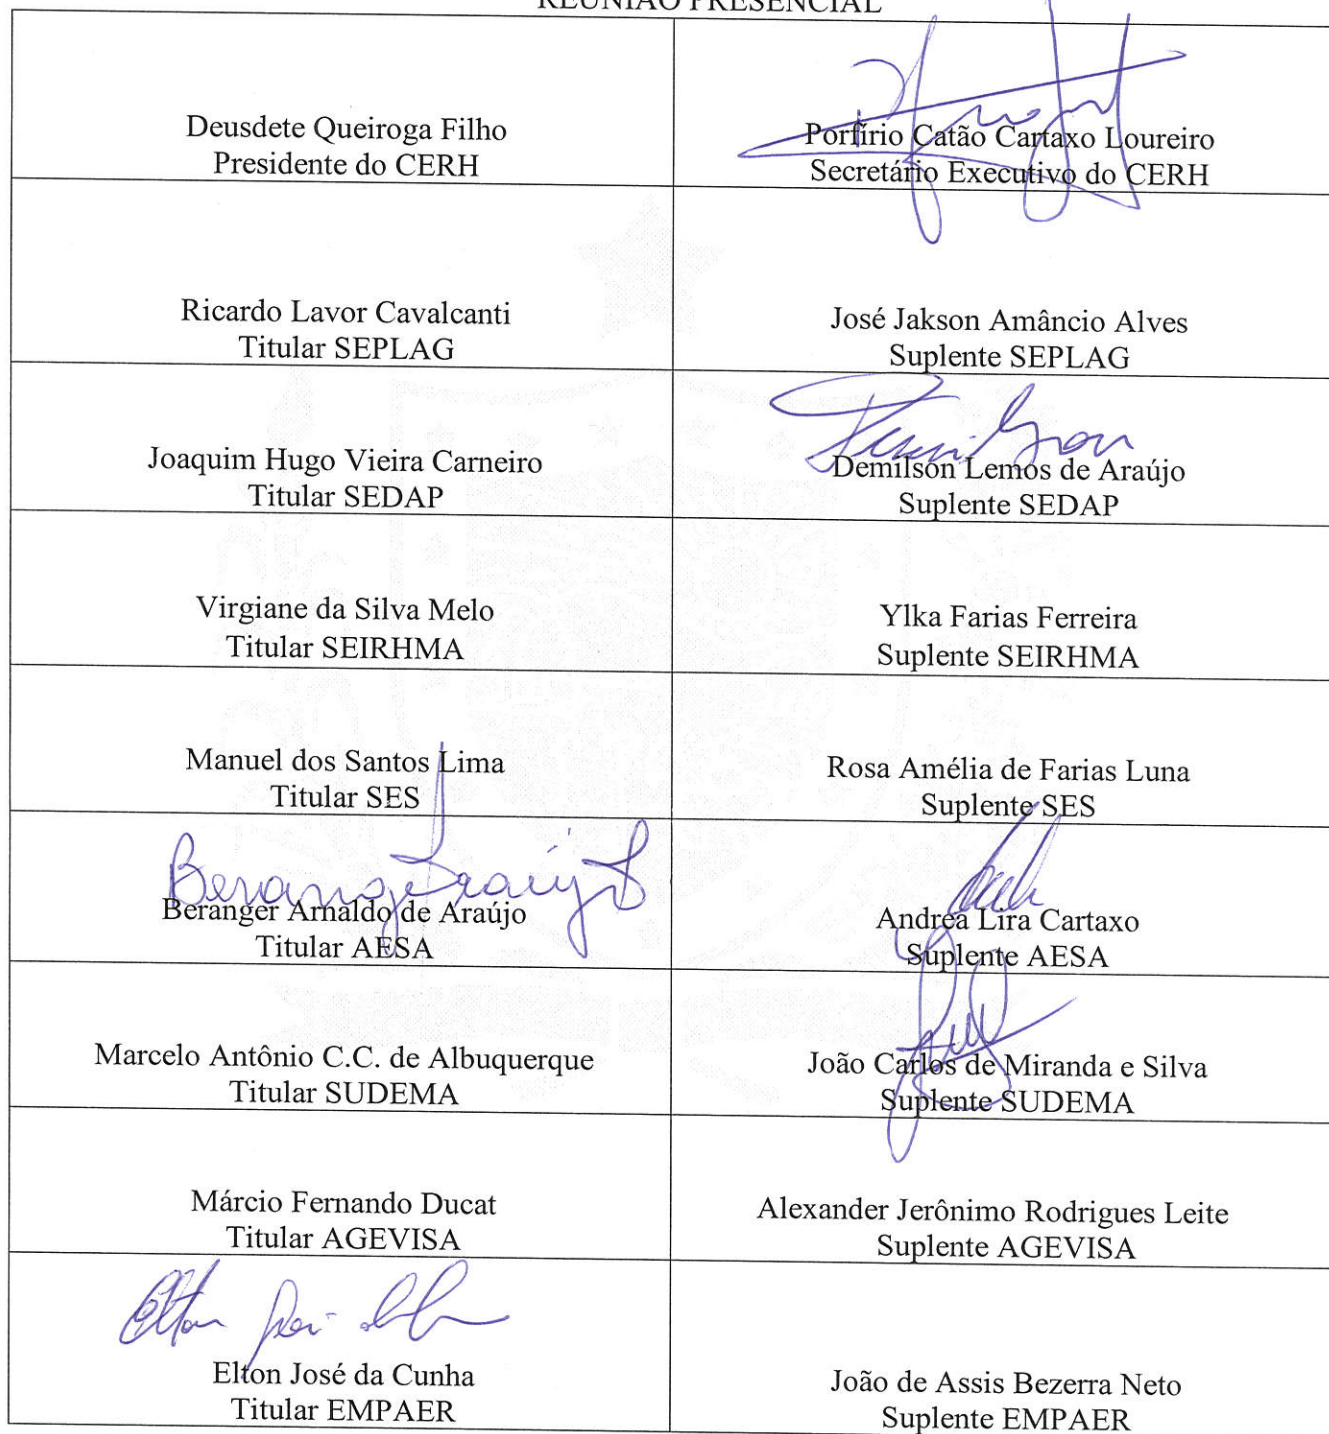 REUNIÃO PRESENCIAL
Deusdete Queiroga Filho
Presidente do CERH
Porfírio Catão Cartaxo Loureiro
Secretário Executivo do CERH
Ricardo Lavor Cavalcanti
Titular SEPLAG
José Jakson Amâncio Alves
Suplente SEPLAG
Joaquim Hugo Vieira Carneiro
Titular SEDAP
Demilson Lemos de Araújo
Suplente SEDAP
Virgiane da Silva Melo
Titular SEIRHMA
Ylka Farias Ferreira
Suplente SEIRHMA
Manuel dos Santos Lima
Titular SES
Rosa Amélia de Farias Luna
Suplente SES
Beranger Arnaldo de Araújo
Titular AESA
Andrea Lira Cartaxo
Suplente AESA
Marcelo Antônio C.C. de Albuquerque
Titular SUDEMA
João Carlos de Miranda e Silva
Suplente SUDEMA
Márcio Fernando Ducat
Titular AGEVISA
Alexander Jerônimo Rodrigues Leite
Suplente AGEVISA
Elton José da Cunha
Titular EMPAER
João de Assis Bezerra Neto
Suplente EMPAER